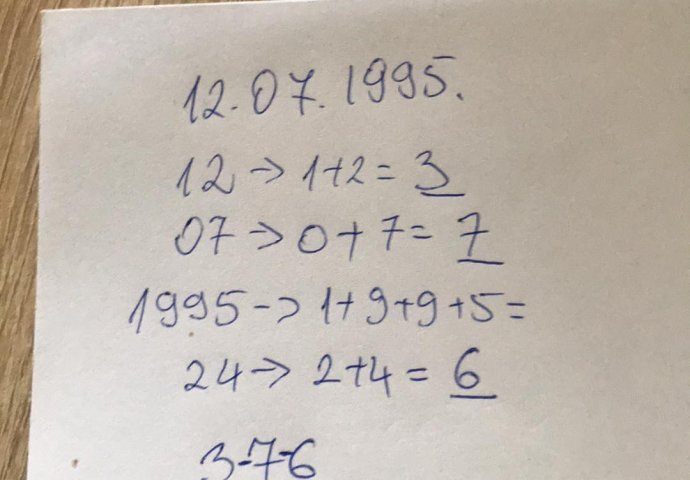 12.07.1995.
12 → 1+2 = 3
07 → 0+7 = 7
1995 → 1+9+9+5 =
24 → 2+4 = 6
3-7-6